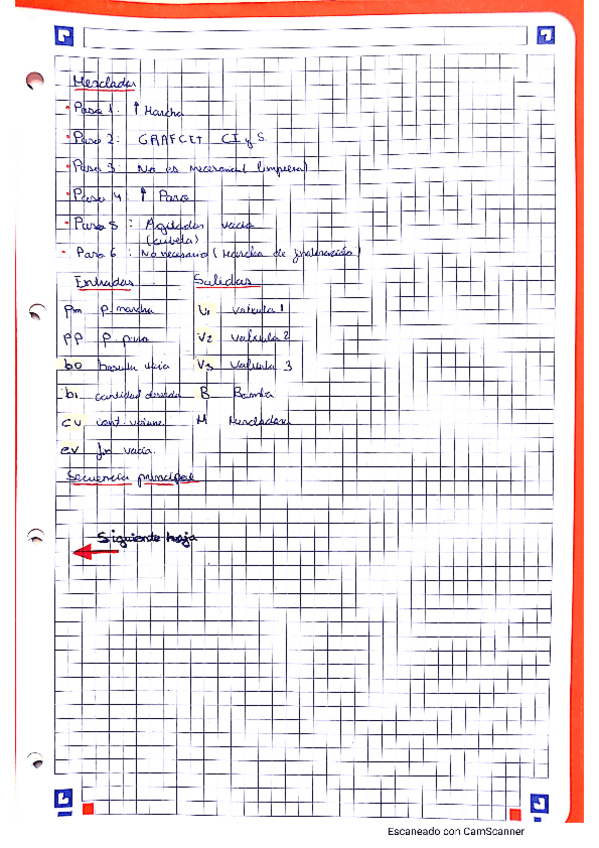 Mezclador
• Paso 1: ↑ Marcha
• Paso 2: GRAFCET CI y S.
• Paso 3: No es necesario( limpieza)
• Paso 4 ↑ Paro
• Paso 5: Agitador vacia
(cubeta)
• Paso 6: No necesario (Marcha de finalización)
Entradas Salidas
Pm P. marcha V1 valvula 1
PP P. paro V2 valvula 2
b0 bascula vacia V3 valvula 3
b1 cantidad deseada B Bomba
CV cont. M Mezcladora
ev fin vacia.
Secuencia principal
Siguiente hoja
Escaneado con CamScanner